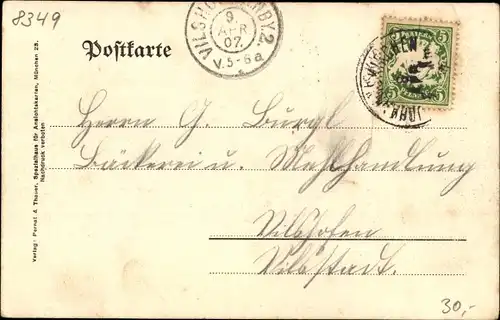 8349
VILSHOFEN NDBY 2.
9
APR
07.
V.5-6a
Postkarte
5
5
Herrn G. Burgl
Bäckerei u. Mehlhandlung
Vilshofen
Vilsstadt.
Verlag: Pernat & Thauer, Spezialhaus für Ansichtskarten, München 23.
Nachdruck verboten
30,-